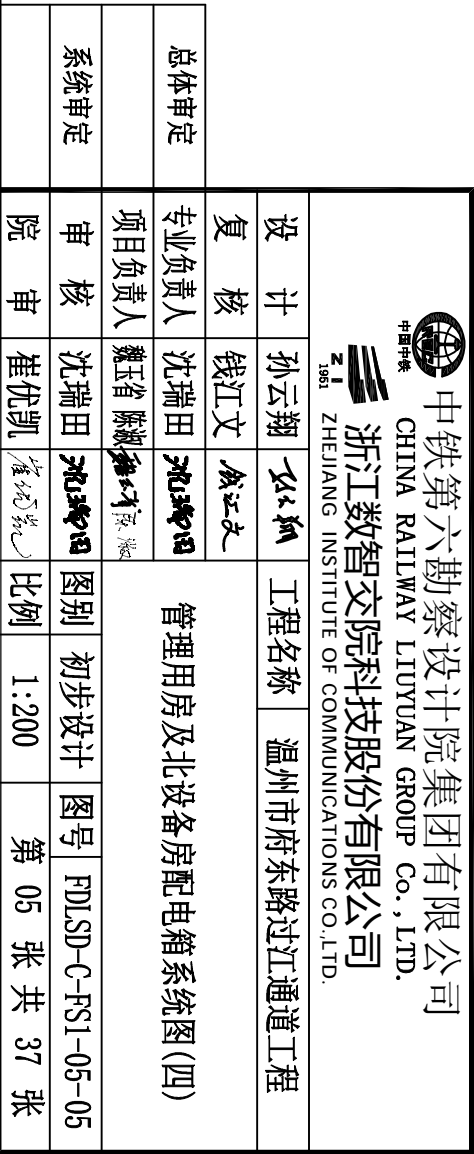 中国中铁
中铁第六勘察设计院集团有限公司
CHINA RAILWAY LIUYUAN GROUP Co.,LTD.
ZI
1951
浙江数智交院科技股份有限公司
ZHEJIANG INSTITUTE OF COMMUNICATIONS CO.,LTD.
设 计 孙云翔 孙云翔 工程名称 温州市府东路过江通道工程
复 核 钱江文 钱江文
总体审定 专业负责人 沈瑞田 沈瑞田 管理用房及北设备房配电箱系统图(四)
项目负责人 魏玉省 陈淑 魏玉省 陈淑
系统审定 审 核 沈瑞田 沈瑞田 图别 初步设计 图号 FDLSD-C-FS1-05-05
院 审 崔优凯 崔优凯 比例 1:200 第 05 张 共 37 张